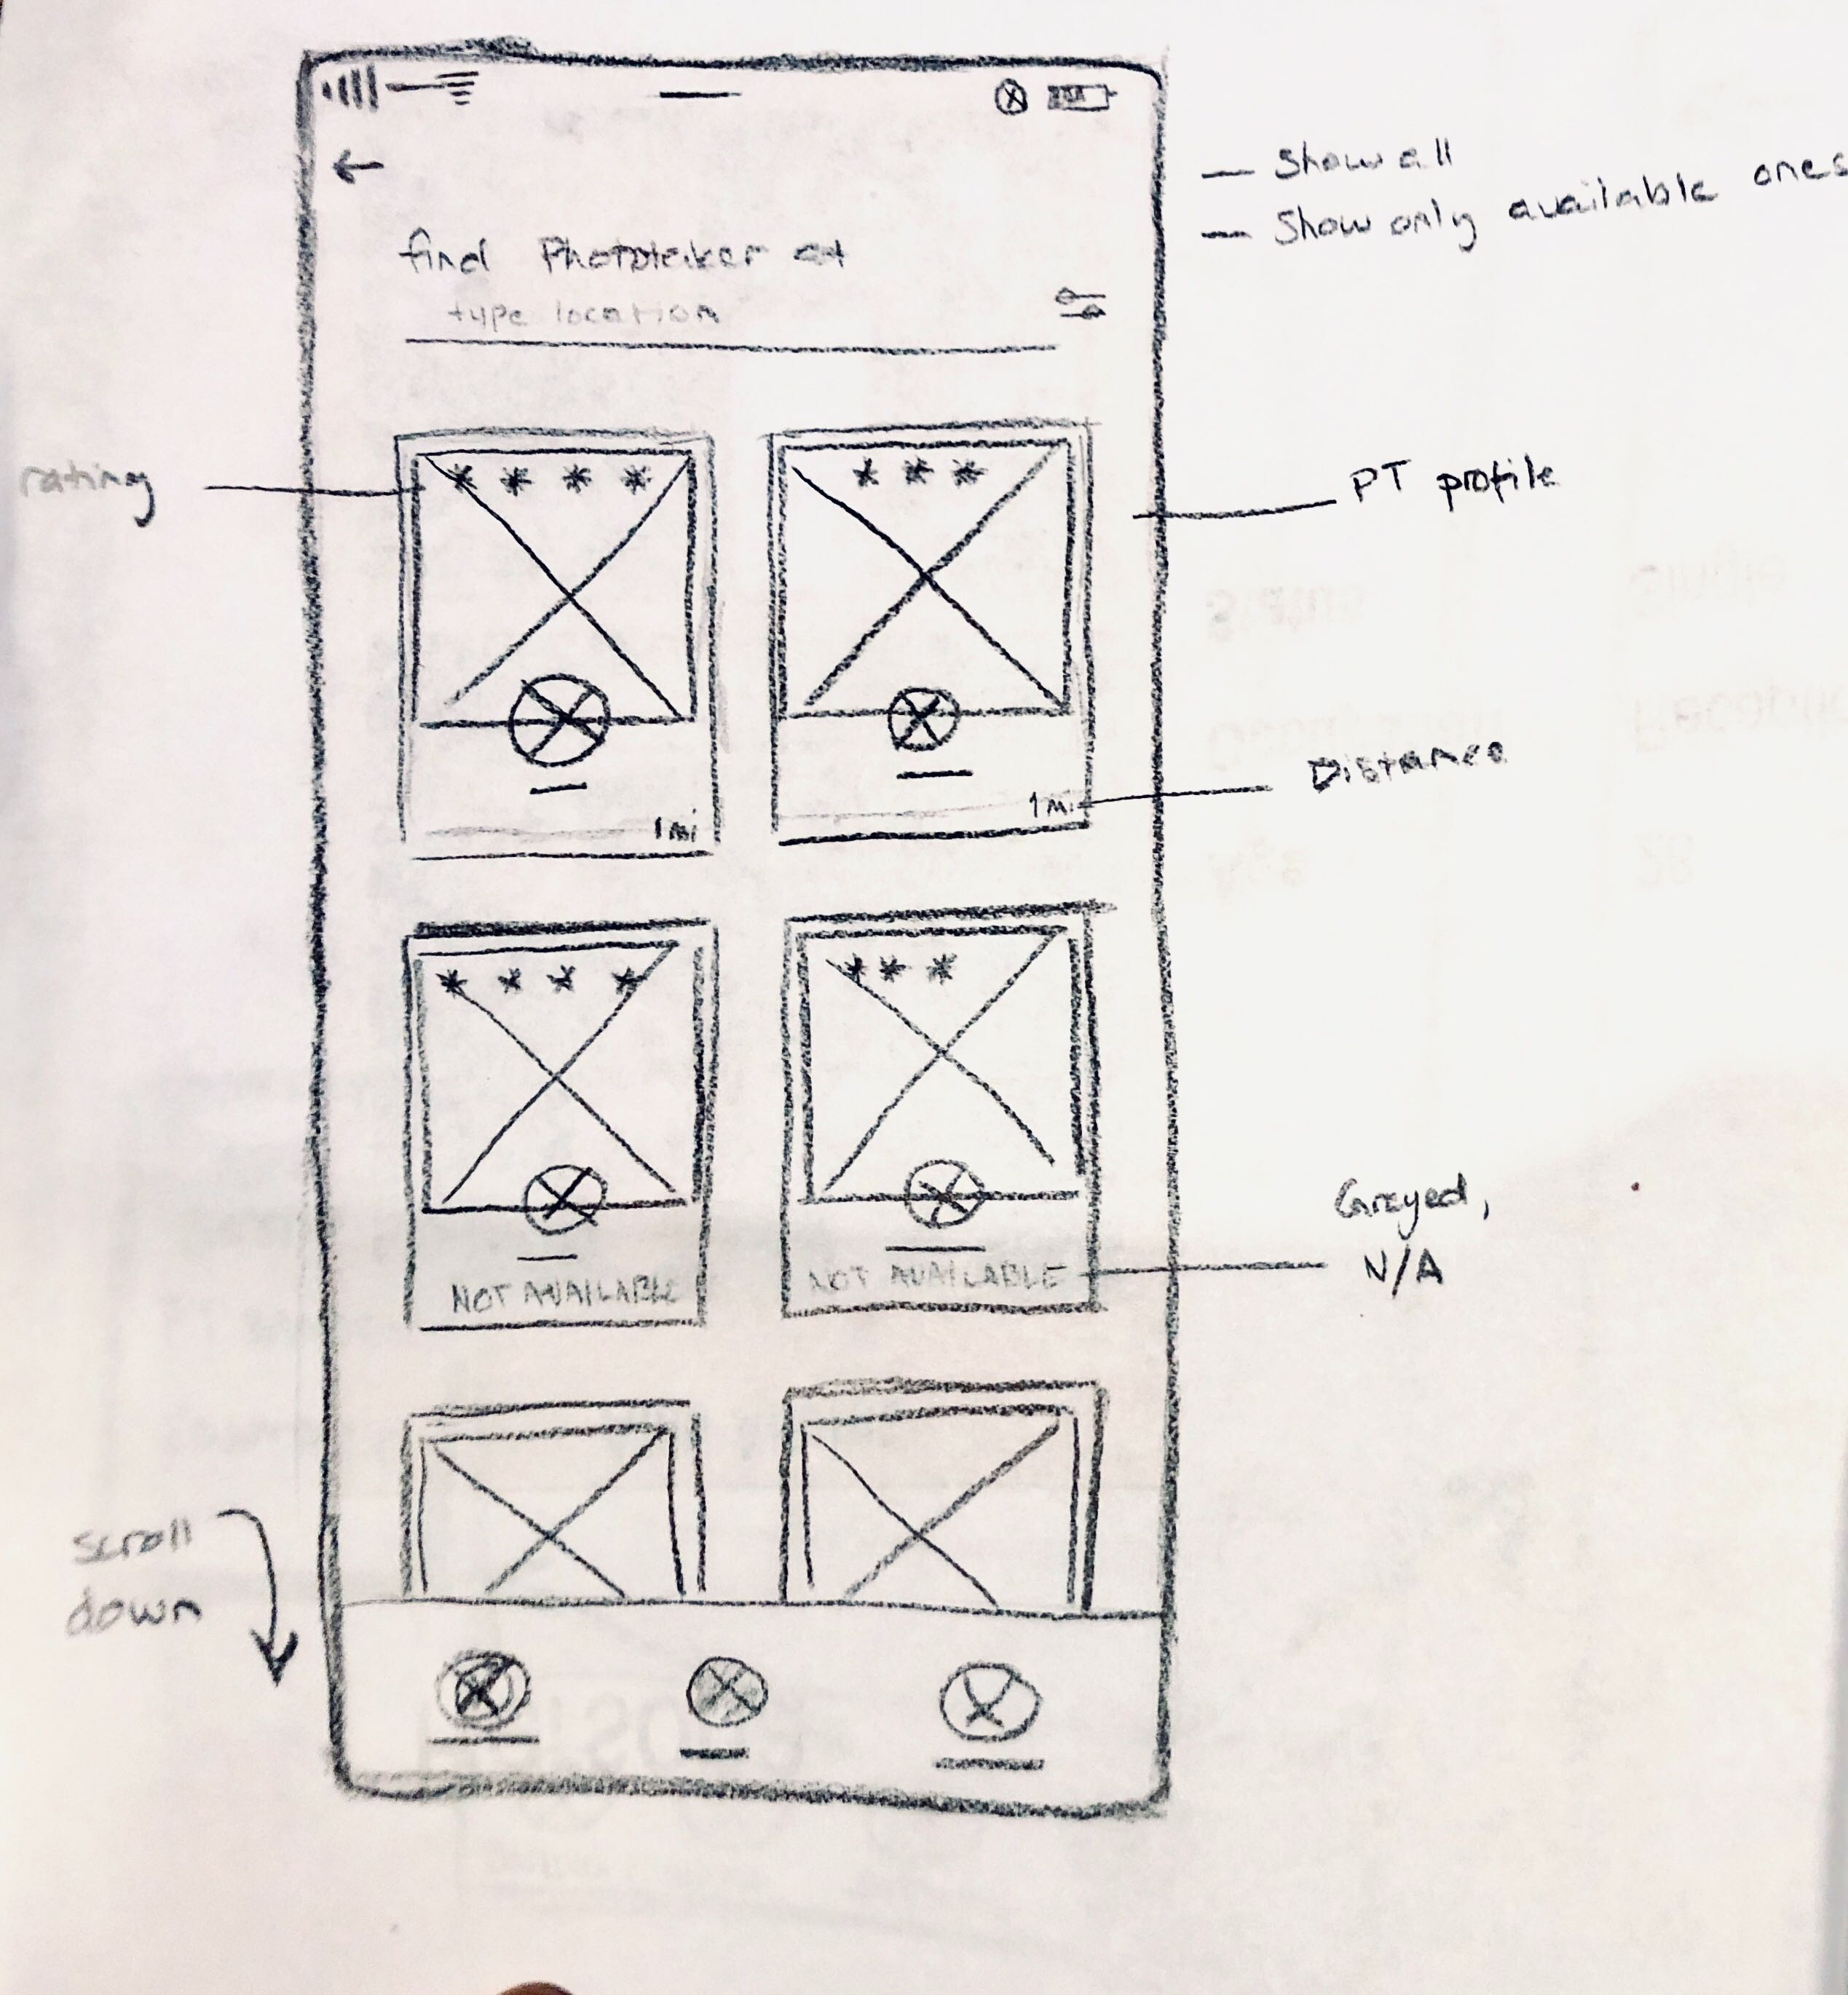 — Show all
— Show only available ones
find Phototaker at
type location
rating
PT profile
Distance
1 mi
1 mi
Grayed,
N/A
NOT AVAILABLE
NOT AVAILABLE
scroll
down